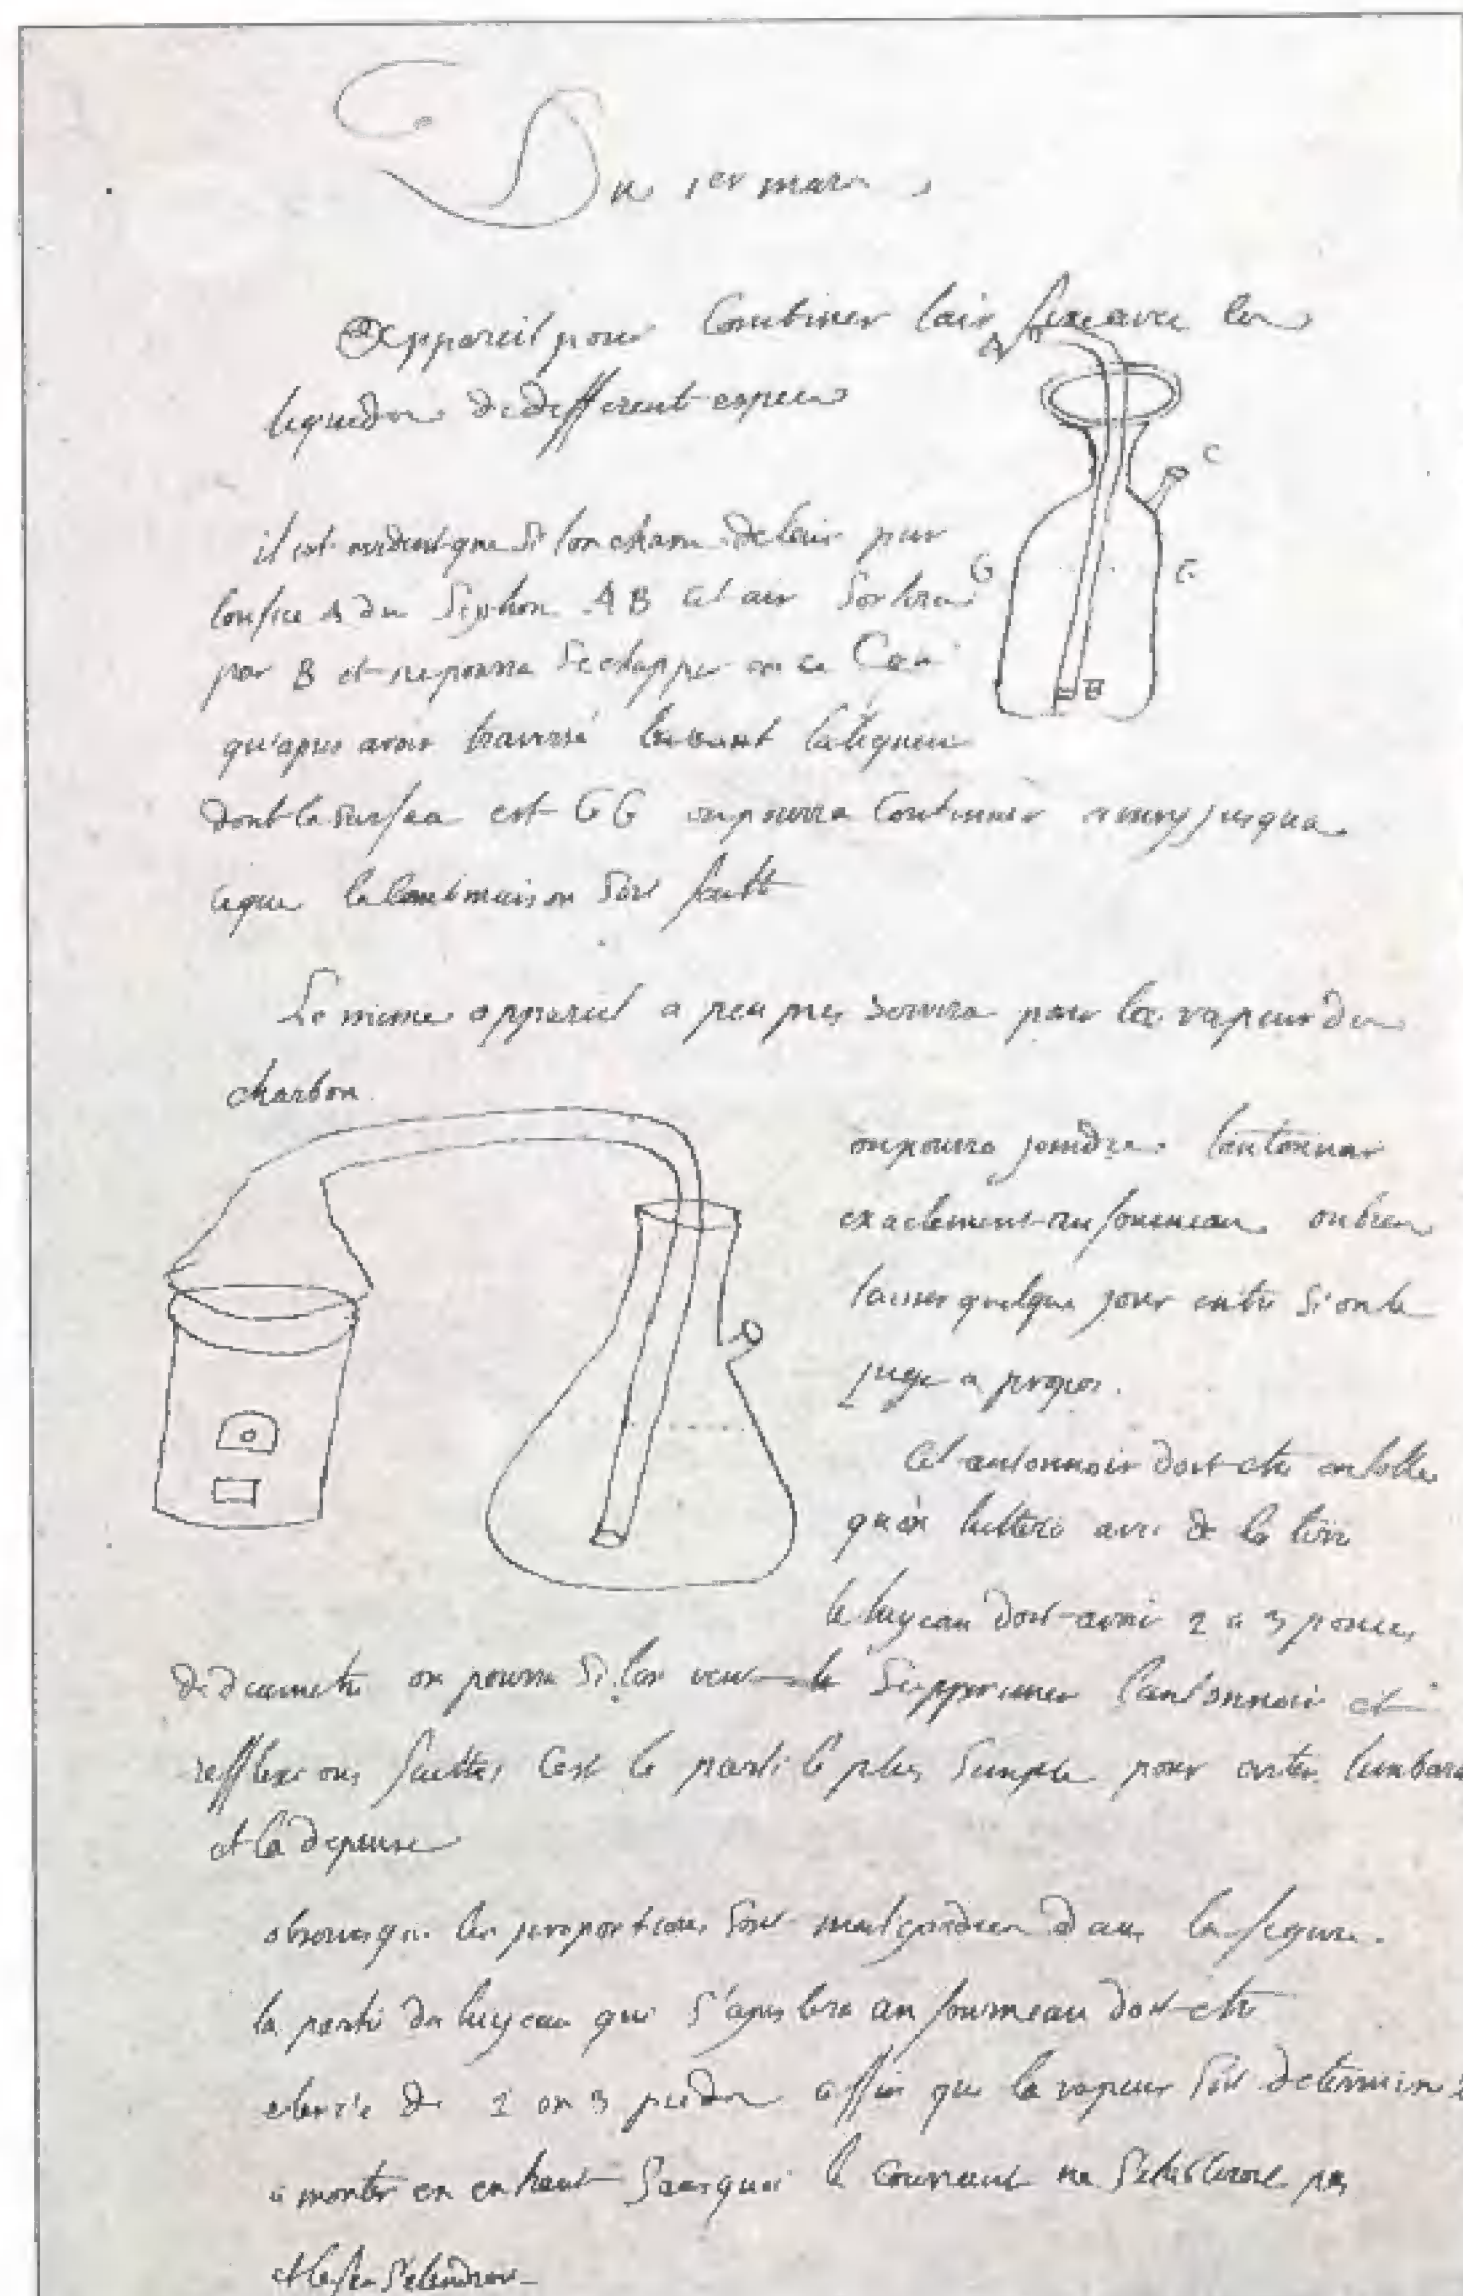 Du 1er mars
Appareil pour Combiner lair fixe avec les
A
liquides de different especes
C
il est evident que Si lon chasse de lair par
G G
lorifice A du Siphon AB cet air Sortira
par B et ne pourra Sechapper en C
B
qu'apres avoir traversé la liqueur
dont la Surface est GG on pourra Continuer jusqua
ceque la Combinaison Soit faitte
Le mesme appareil a peu pres servira pour la vapeur du
charbon
on pourra joindre lantonnoir
exactement au fourneau ou bien
laisser quelque jour entre Si on le
juge a propos.
Cet antonnoir doit etre en tolle
quon luttera avec de la terre
le tuyeau doit avoir 2 a 3 pouces
de diametre on pourra Si lon veut Supprimer lantonnoir et
refflexions faittes Cest le parti le plus Simple pour eviter lembaras
et la depense
observes que les proportions Sont mal gardees dans la figure.
la partie du tuyeau qui S'ajustera au fourneau doit etre
elevée de 2 ou 3 pieds affin que la vapeur Soit determinée
a monter en en haut Sans quoi le Courrant ne Setabliroit pas
et le feu Seteindroit